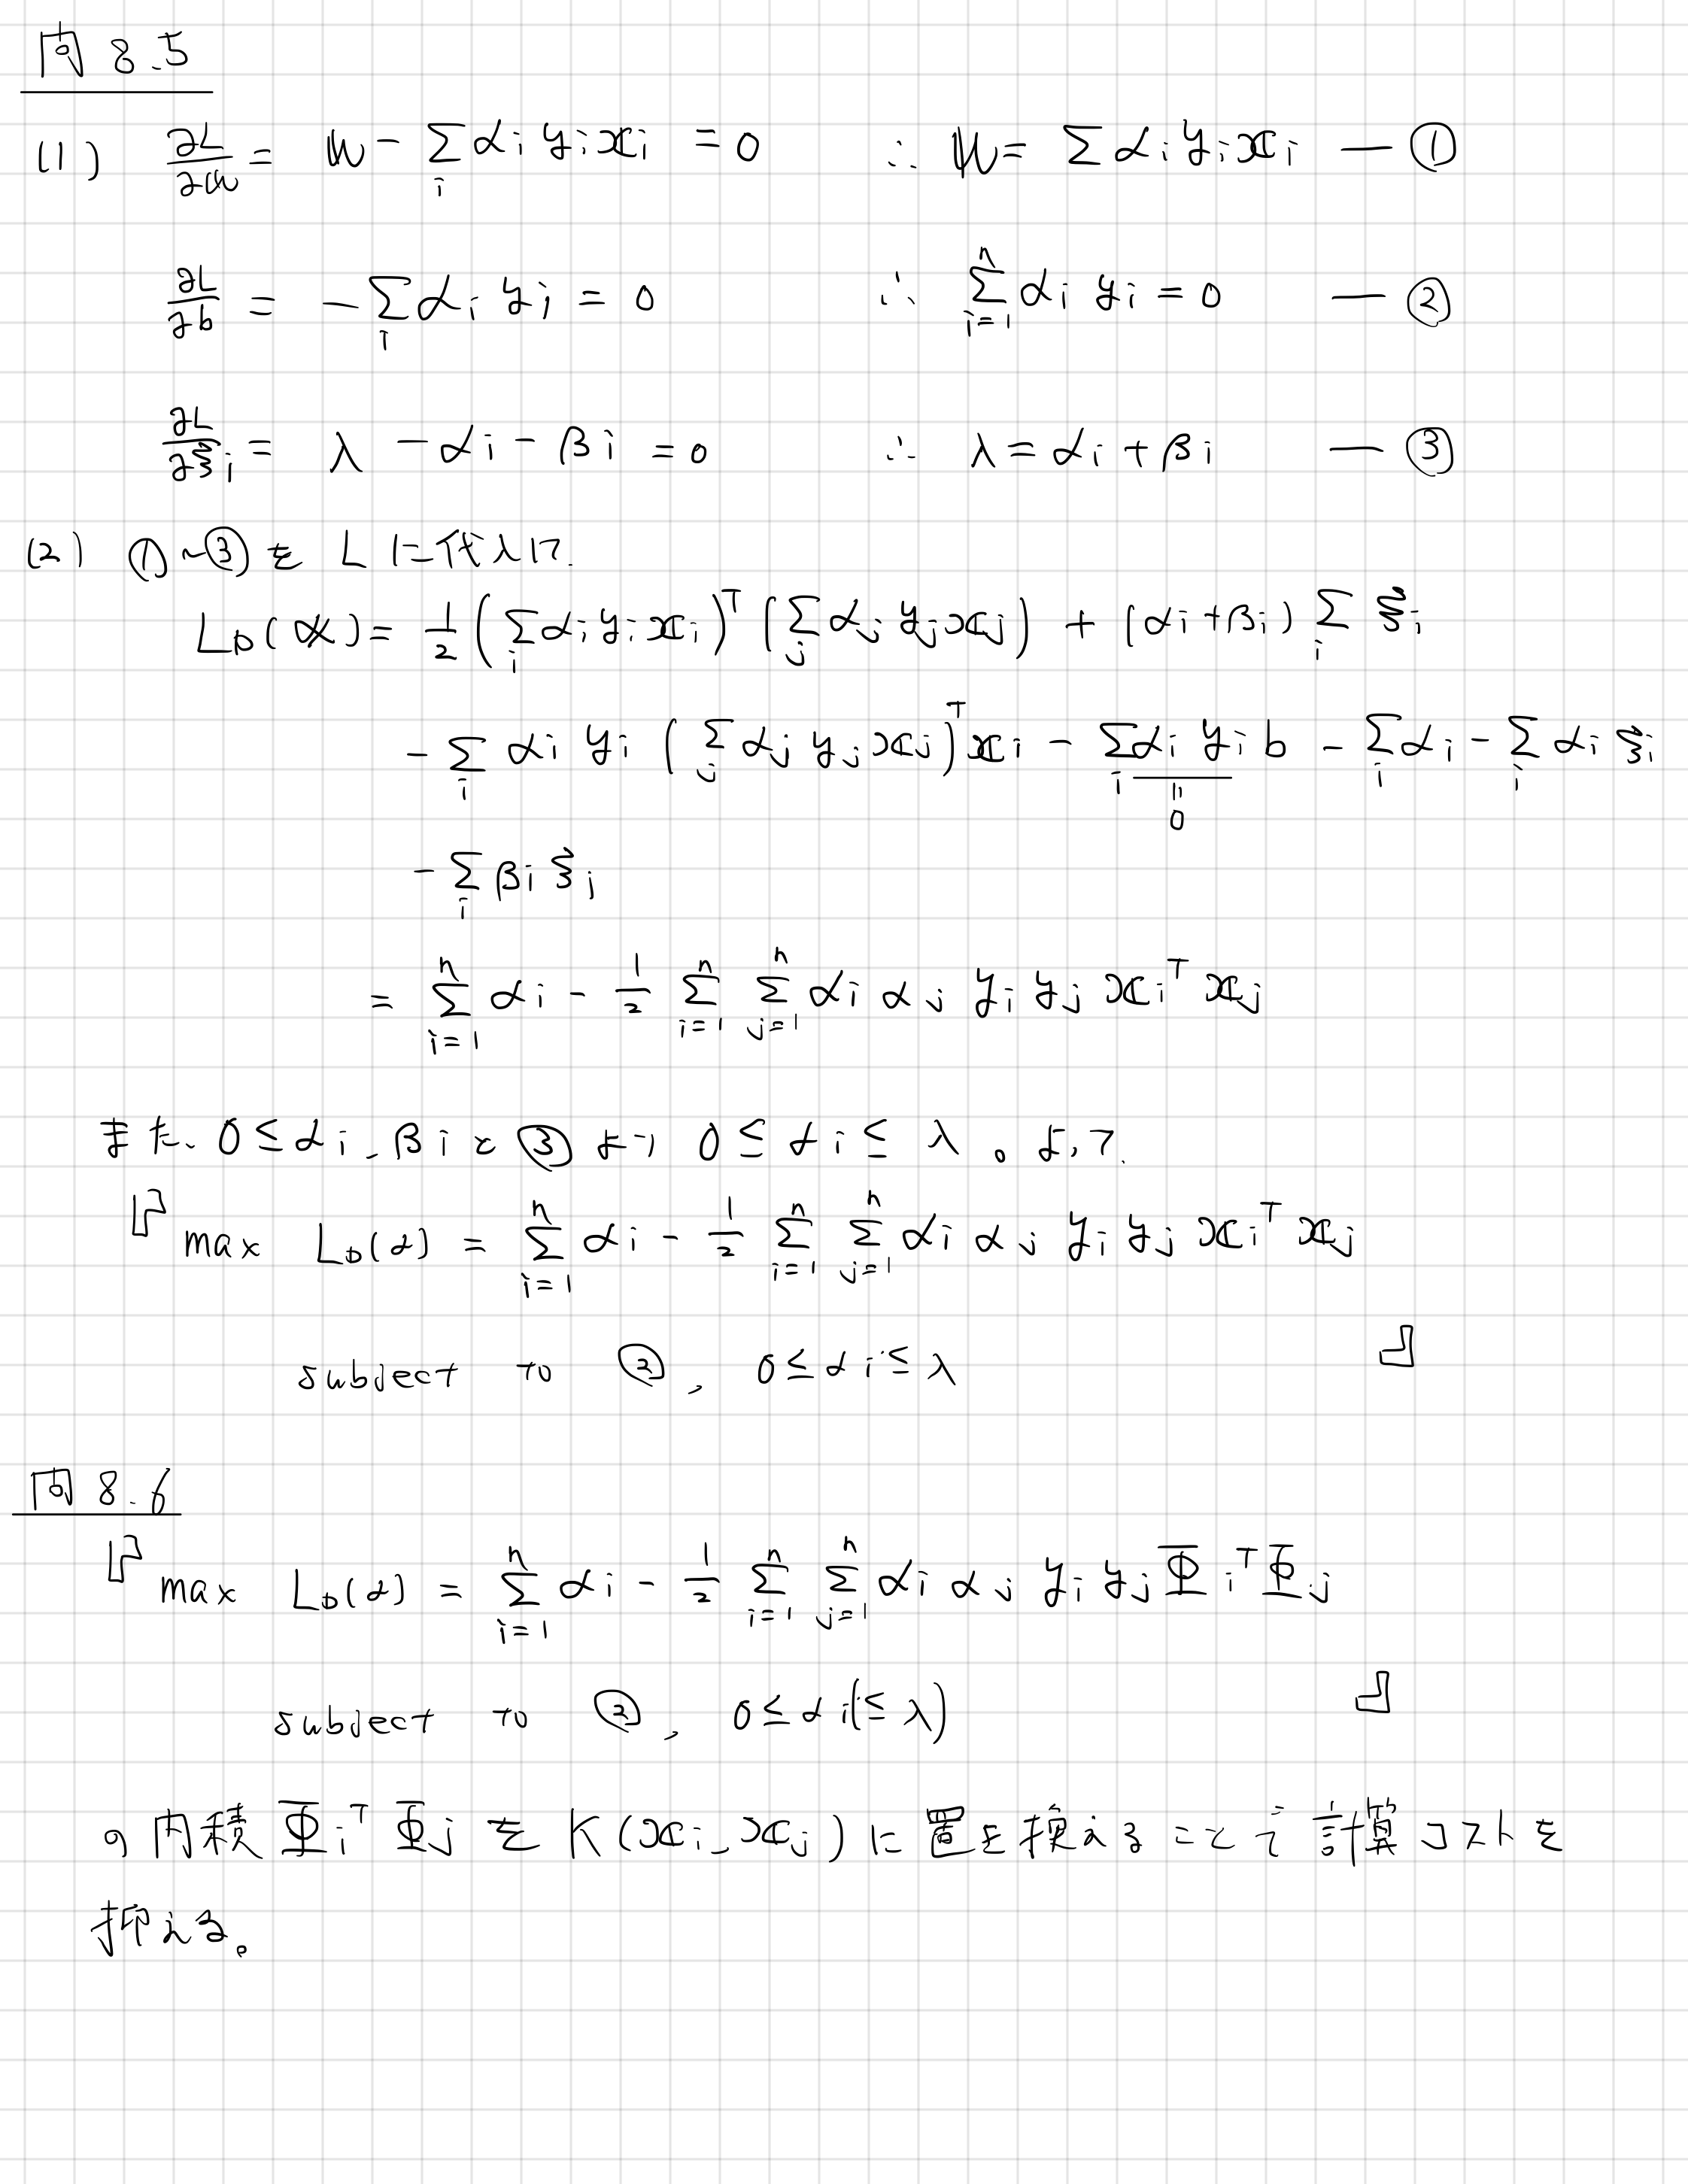 問 8.5
(1) ∂L/∂w = w - Σ_i αi yi xi = 0 ∴ w = Σ αi yi xi — ①
∂L/∂b = -Σ_i αi yi = 0 ∴ Σ_{i=1}^n αi yi = 0 — ②
∂L/∂ξi = λ - αi - βi = 0 ∴ λ = αi + βi — ③
(2) ①~③を L に代入して.
L_D(α) = 1/2 (Σ_i αi yi xi)^T (Σ_j αj yj xj) + (αi + βi) Σ_i ξi
- Σ_i αi yi (Σ_j αj yj xj)^T xi - Σ_i αi yi b - Σ_i αi - Σ_i αi ξi
= 0
- Σ_i βi ξi
= Σ_{i=1}^n αi - 1/2 Σ_{i=1}^n Σ_{j=1}^n αi αj yi yj xi^T xj
また、0 ≤ αi, βi と ③ より 0 ≤ αi ≤ λ 。よって.
『 max L_D(α) = Σ_{i=1}^n αi - 1/2 Σ_{i=1}^n Σ_{j=1}^n αi αj yi yj xi^T xj
subject to ②, 0 ≤ αi ≤ λ 』
問 8.6
『 max L_D(α) = Σ_{i=1}^n αi - 1/2 Σ_{i=1}^n Σ_{j=1}^n αi αj yi yj Φi^T Φj
subject to ②, 0 ≤ αi (≤ λ) 』
の内積 Φi^T Φj を K(xi, xj) に置き換えることで計算コストを
抑える。